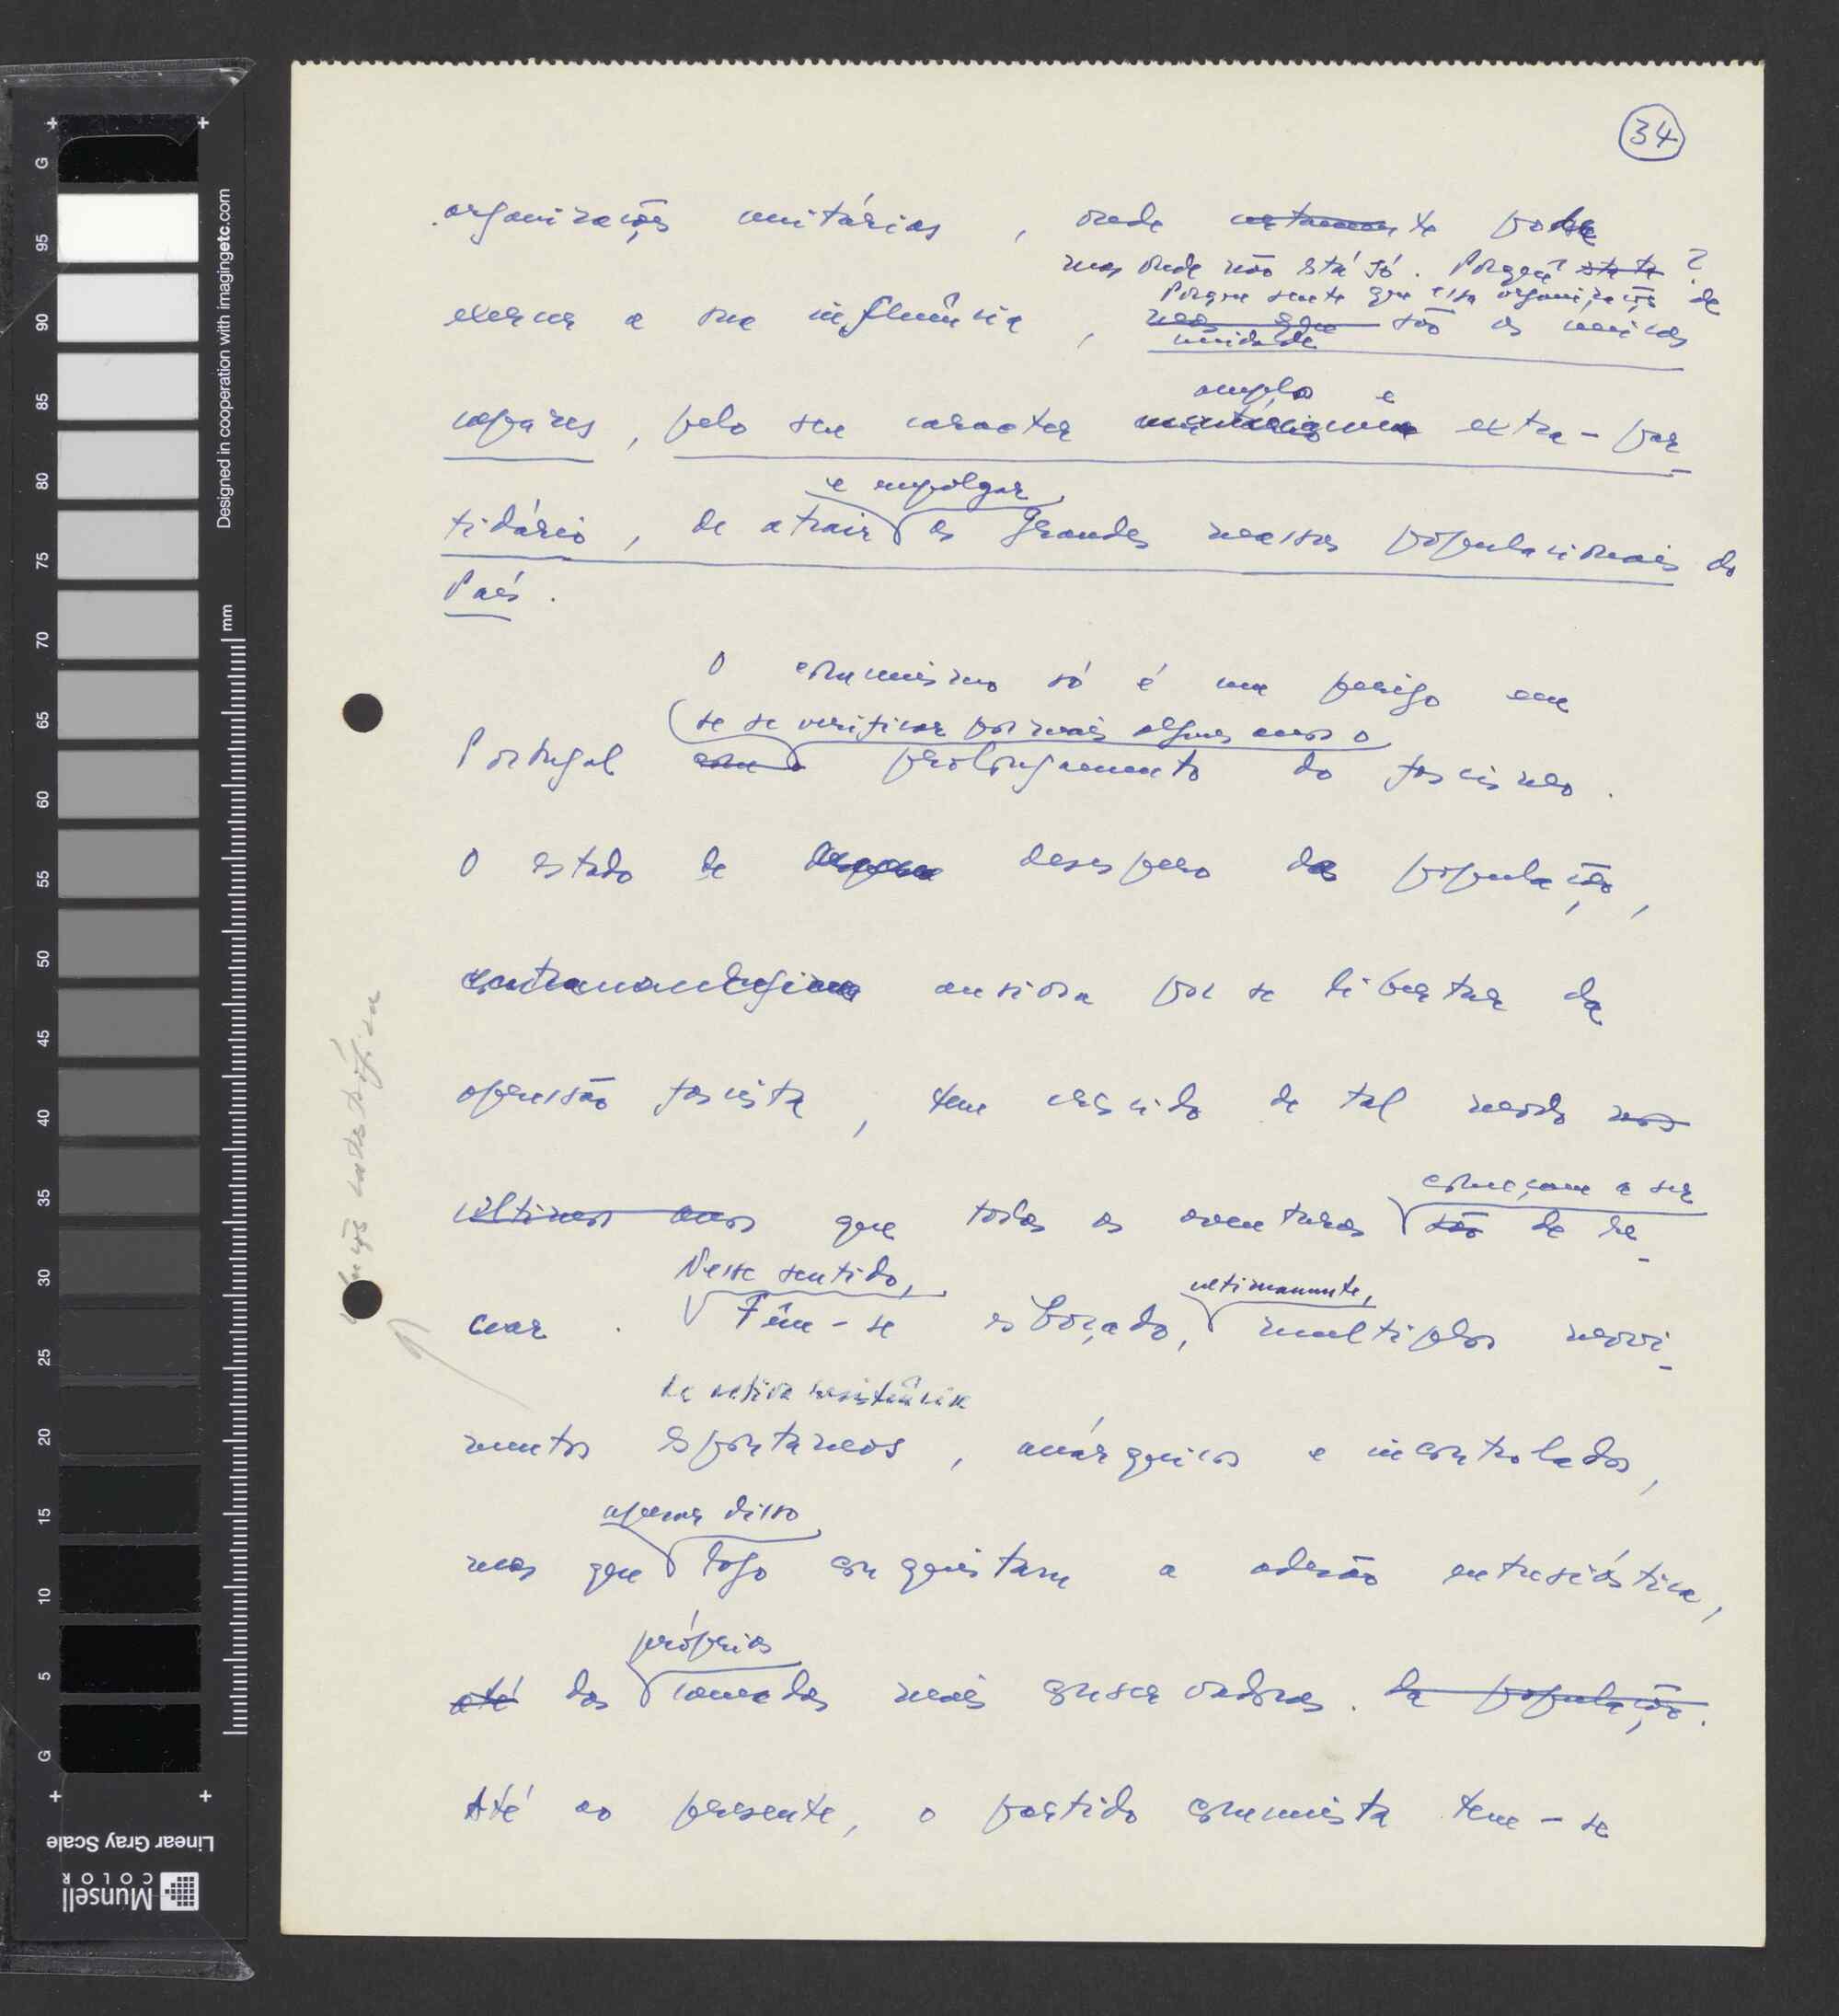 34
organizações unitárias, onde certamente pode
mas onde não está só. Porquê?
Porque sente que essas organizações de
exercer a sua influência, mas que são as únicas
unidade
amplo e
capazes, pelo seu caracter extra-par
e empolgar
tidário, de atrair as grandes massas populacionais do
País.
O comunismo só é um perigo em
se se verificar por mais alguns anos o
Portugal com o prolongamento do fascismo.
O estado de desespero da população,
ansiosa por se libertar da
opressão fascista, tem crescido de tal modo nos
começam a ser
últimos anos que todas as aventuras são de re-
Nesse sentido, ultimamente,
cear. Têm-se esboçado, multiplos movi-
de activa resistência
mentos espontaneos, anárquicos e incontrolados,
apesar disso
mas que logo conquistam a adesão entusiástica,
próprias
até das camadas mais conservadoras. da população.
Até ao presente, o partido comunista tem-se
solução catastrófica
G
95
90
85
80
75
70
65
60
55
50
45
40
35
30
25
20
15
10
5
G
Designed in cooperation with imagingetc.com
mm
Linear Gray Scale
Munsell
COLOR